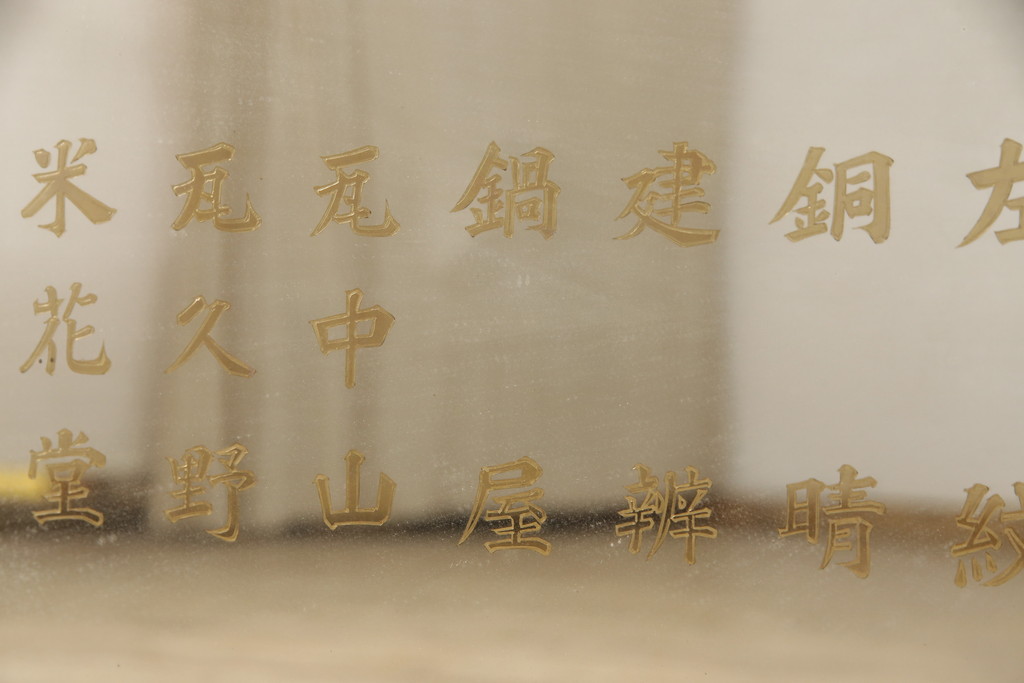 左紋
銅晴
建辨
鍋屋
瓦中山
瓦久野
米花堂